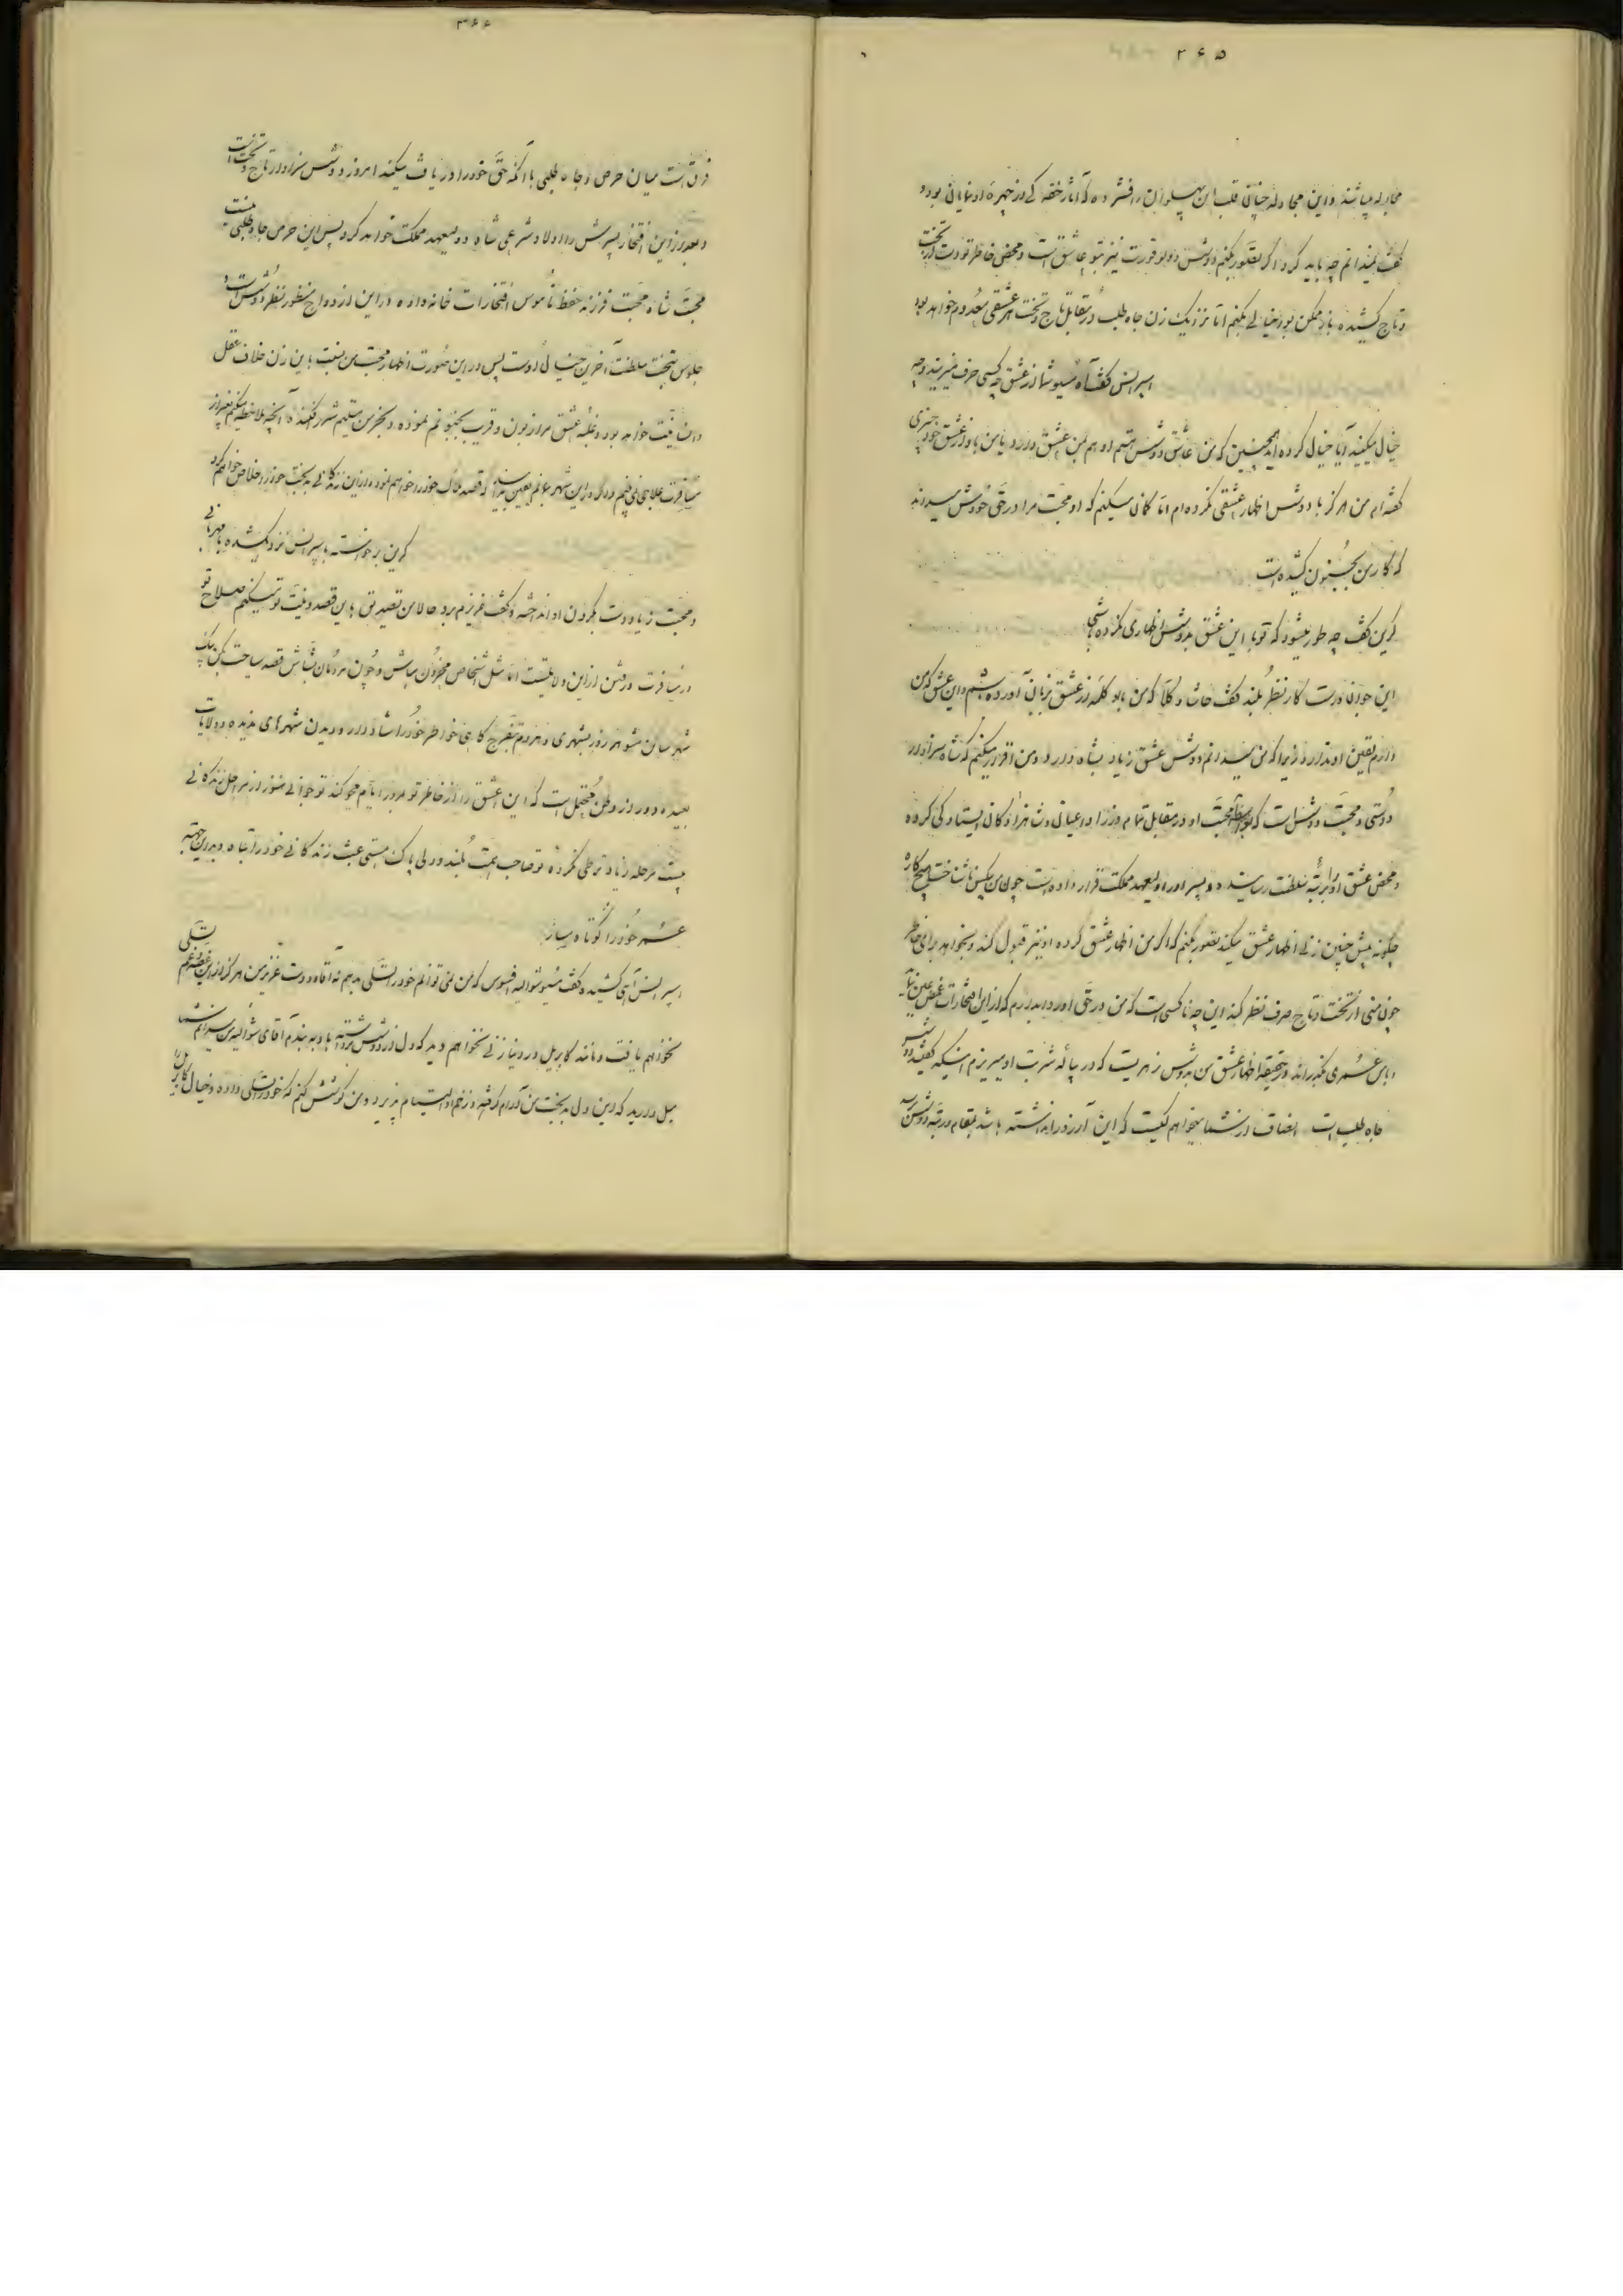 ۲۶۵
مجادله میباشند و این مجادله چنانی قلب این پهلوان را فشرده که آثار خفه‌گی در چهره او نمایان بود و
گفت نمیدانم چه باید کرد اگر تصور بکنم دوش دولوفورت نیز بتو عاشق است و محض خاطر تو دست از تخت
و تاج کشیده باز ممکن بود خیالی بکنم اما نزد یک زن جاه طلب در مقابل تاج و تخت هر عشقی معدوم خواهد بود
اسپرانس گفت آه مسیو شما از عشق چه کسی حرف میزنید و چه
خیال میکنید آیا خیال کرده‌اید همچنین که من عاشق دوشس هستم او هم بمن عشق دارد یا من با او از عشق خود چیزی
گفته‌ام من هرگز با دوشس اظهار عشقی نکرده‌ام اما گمان میکنم که او محبت مرا در حق خودش میداند
که کار من بجنون کشیده است
کرین گفت چه طور میشود که تو با این عشق بدوشس اظهاری نکرده باشی
این جوان درست کار نظر بلند گفت حاشا و کلا که من با او کلمه از عشق بزبان آورده باشم و این عشق که من
دارم یقین او ندارد زیرا که من میدانم دوشس عشق زیاد بشاه دارد و من اقرار میکنم که شاه سزاوار
دوستی و محبت دوشس است که بواسطه محبت او در مقابل تمام وزراء و اعیان و شاهزادگان ایستادگی کرده
و محض عشق او را برتبه سلطنت رسانیده و پسر او را ولیعهد مملکت قرار داده است چون من یکس ناشناخت هیچ کاره
چگونه پیش چنین زنی اظهار عشق میکند تصور بکنم که اگر من اظهار عشق کرده او نیز قبول کند و بخواهد برای خاطر
چون منی از تخت و تاج صرف نظر کند این چه ناکسی است که من در حق او روا بدارم که از این افتخارات غمض عین نماید
و با من عمری بگذراند در حقیقه اظهار عشق من بدوشس زهریست که در پیاله شربت او میریزم اینکه گفتید دوشس
جاه طلب است انصاف از شما میخواهم کیست که این آرزو را نداشته باشد بمقام و رتبه دوشس برسد
۳۶۶
فرق است میان حرص و جاه طلبی با آنکه حق خود را دریافت میکند امروز دوشس سزاوار تاج و تخت است
و بعد از این افتخار پسرش را اولاد شرعی شاه و ولیعهد مملکت خواهد کرد پس این حرص جاه طلبی نیست
محبت شاه محبت فرزند حفظ ناموس افتخارات خانه‌واده در این ازدواج منظور نظر دوشس است و
جلوس بتخت سلطنت آخرین خیال اوست پس در این صورت اظهار محبت من نسبت باین زن خلاف عقل
و انسانیت خواهد بود و غلبه عشق مرا زبون و قریب بجنونم نموده و بجز من میلیم شرر نکند آنچه ملاحظه میکنم بغیر از
مسافرت علاجی نمی‌بینم و اگر در این شهر بمانم یقین بدانید که قصد هلاک خود را خواهم نمود و از این زندگانی بدبخت خود را خلاص خواهم کرد
کرین برخواسته باسپرانس نزدیک شده با مهربانی
و محبت زیاد دست بگردن او انداخته و گفت عزیزم مرد حالا من تصدیق باین قصد و نیت تو میکنم صلاح تو
در مسافرت و رفتن از این ولایتست اما مثل اشخاص محزون مباش و چون مردمان بشاش قصد سیاحت کن یک
شهر ساکن مشو هر روز بشهری و هر دم بتفرج گاهی خواطر خود را شاد دار و دیدن شهرهای ندیده و ولایات
بعیده و دور از وطن محتمل است که این عشق را از خاطر تو مرور ایام محو کند تو جوانی هنوز از مراحل زندگانی
بیست مرحله زیادتر طی نکرده تو صاحب همت بلند و دلی پاک هستی عبث زندگانی خود را تباه و بدین جهته
عمر خود را کوتاه مساز
اسپرانس آهی کشیده و گفت مسیو شوالیه افسوس که من نمی‌توانم خود را تسلی بدهم نه آقا و دوست عزیز من هرگز از این غصه و غم تسلی
نخواهم یافت و مانند کابریل در دنیا زنی نخواهم دید که دل از دوشس برداشته باو به بندم آقای شوالیه من میدانم شما
میل دارید که این دل بدبخت من آرام گرفته و زخم او التیام پذیرد و من کوشش کنم که خود را تسلی داده و خیال کابریل را